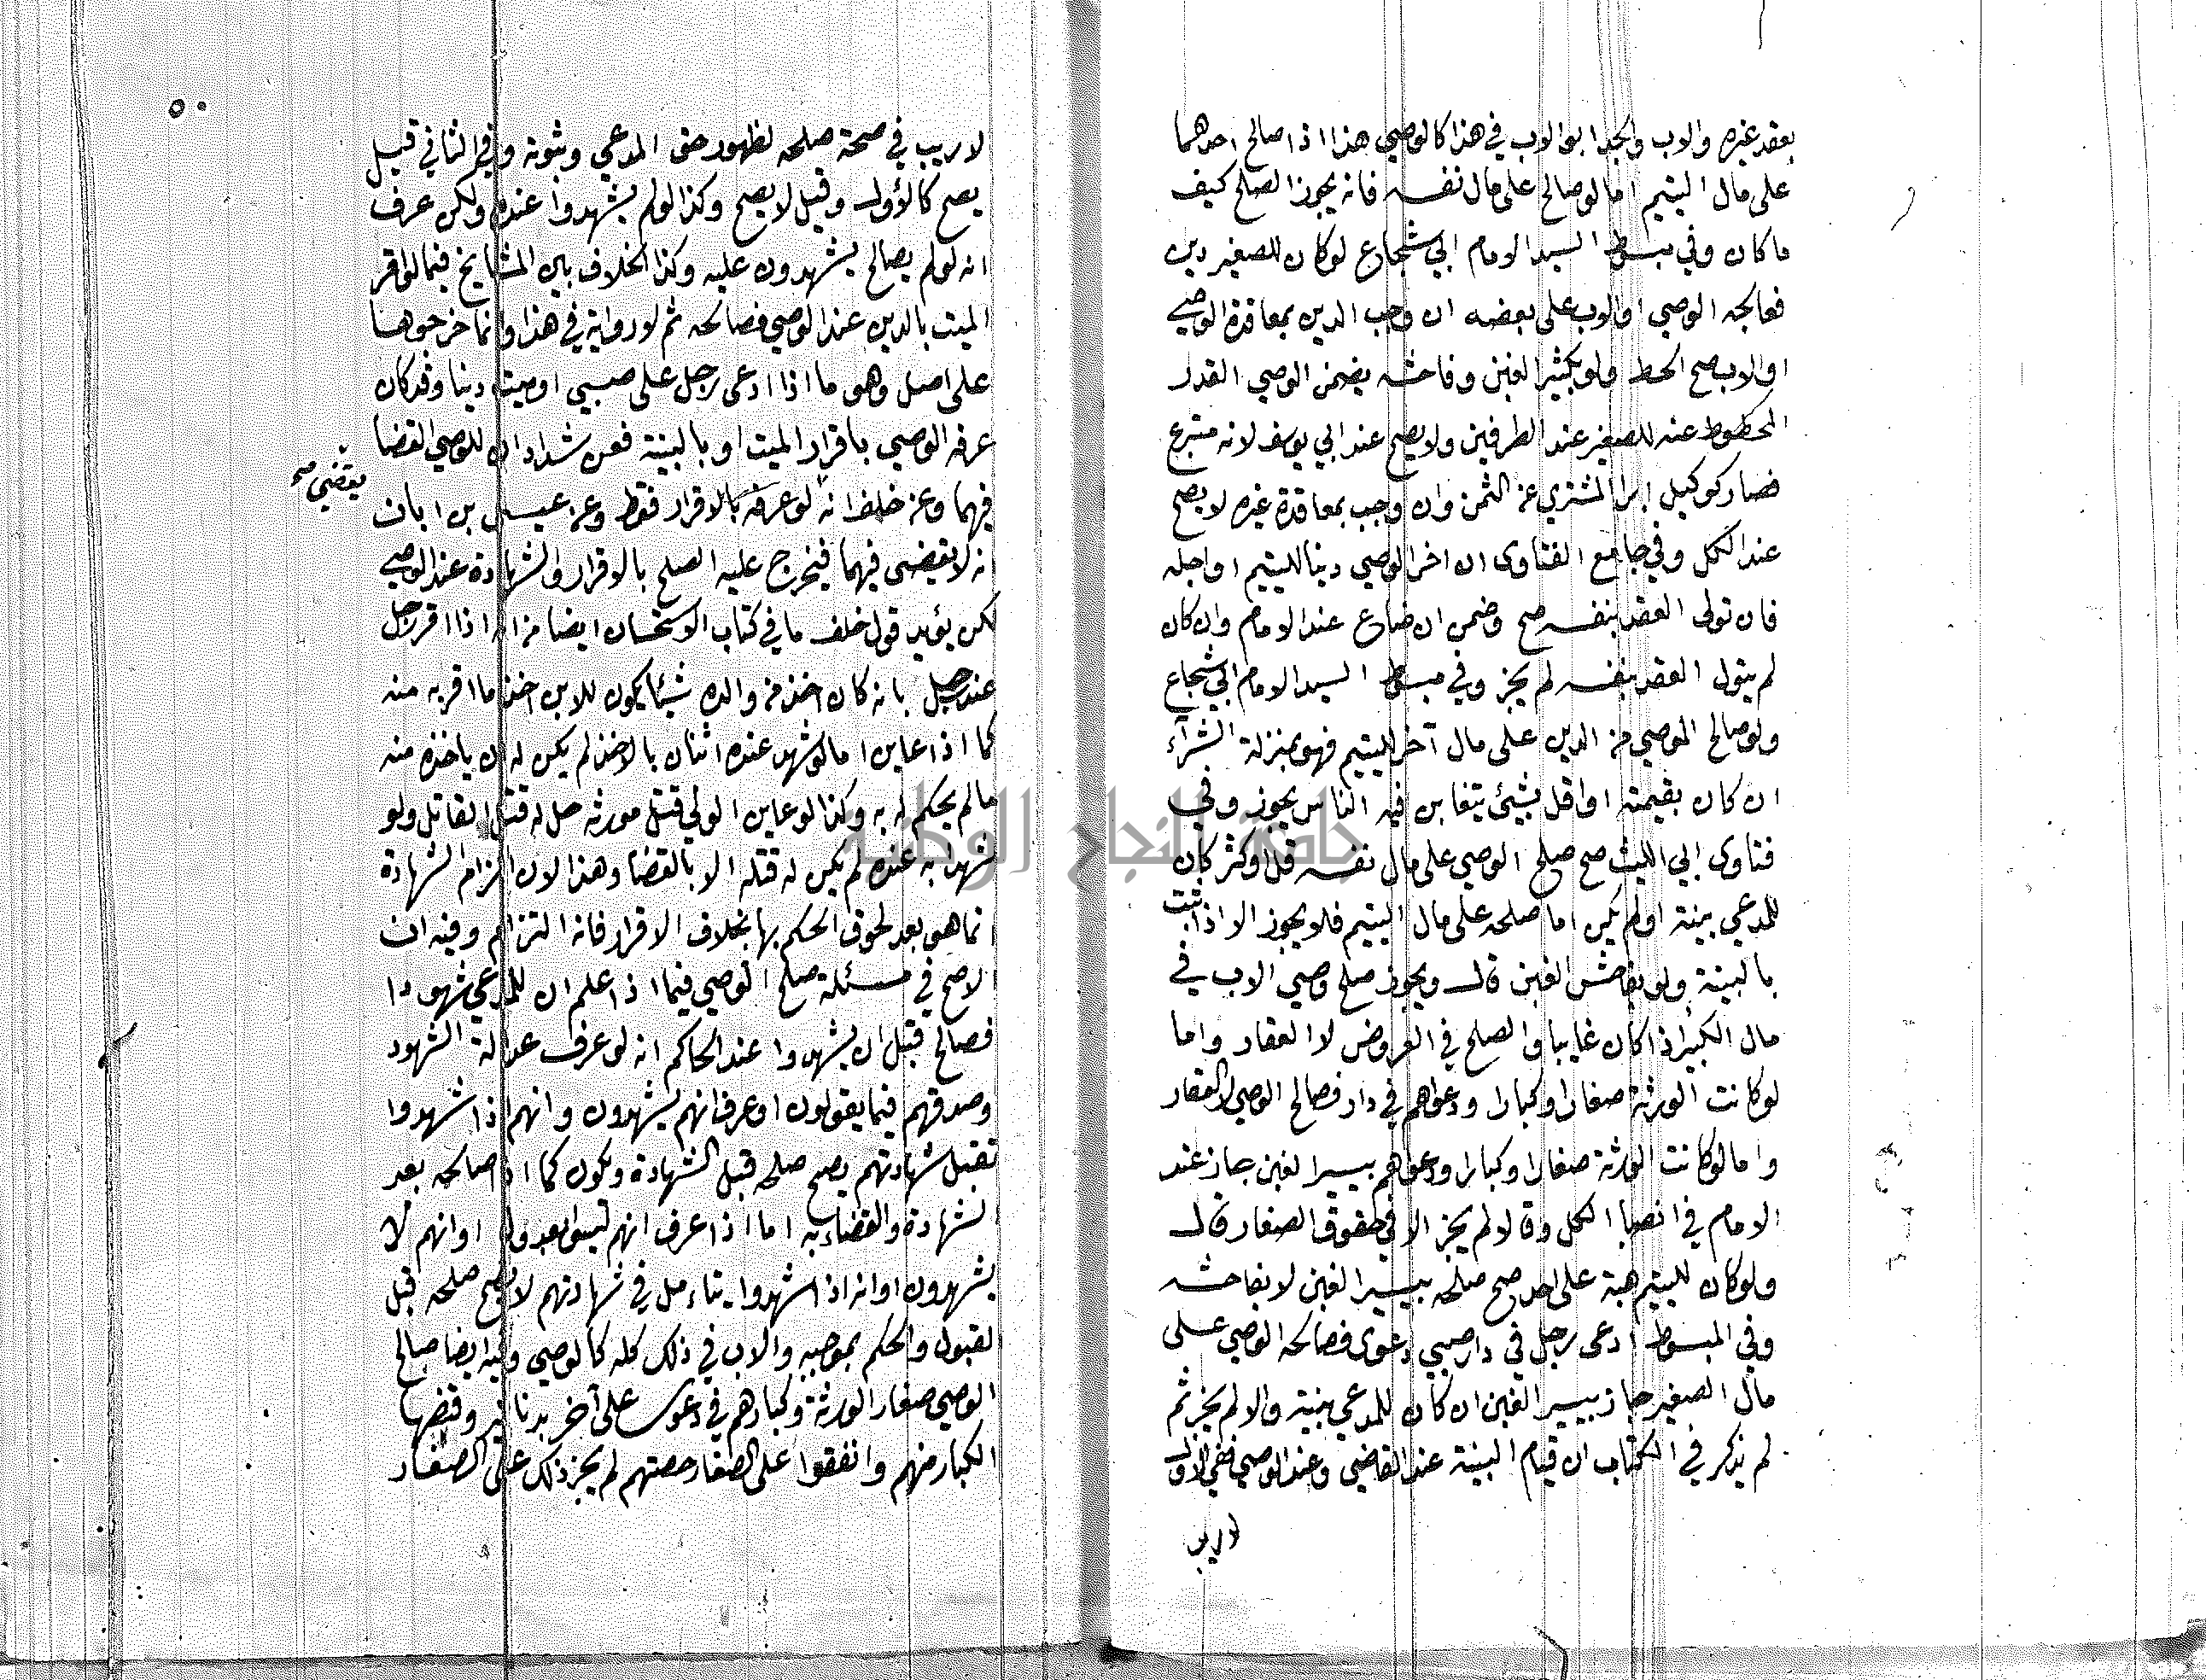 بعقد غيره والاب والجد ابو الاب في هذا كالوصي هذا اذا صالح احدهما
على مال اليتيم اما لو صالح على مال نفسه فانه يجوز الصلح كيف
ما كان وفي مبسوط السيد الامام ابي شجاع لو كان للصغير دين
فصالحه الوصي او الاب على بعضه ان وجب الدين بمعاقدة الوصي
او الاب صح الحط ولو بكثير الغبن وفاحشه يضمن الوصي القدر
المحطوط عنه للصغير عند الطرفين ولا يصح عند ابي يوسف لانه متبرع
فصار كوكيل ابرا المشتري عن الثمن وان وجب بمعاقدة غيره لا يصح
عند الكل وفي جامع الفتاوى ان اخر الوصي دينا لليتيم او اجله
فان تولى العقد بنفسه صح وضمن ان ضاع عند الامام وان كان
لم يتول العقد بنفسه لم يجز وفي مبسوط السيد الامام ابي شجاع
ولو صالح الوصي من الدين على مال آخر لليتيم فهو بمنزلة الشرآء
ان كان بقيمته او اقل بشيئ يتغابن فيه الناس يجوز وفي
فتاوى ابي الليث صح صلح الوصي على مال نفسه قل او كثر كان
للمدعي بينة او لم يكن اما صلحه على مال اليتيم فلا يجوز الا اذا ثبت
بالبينة ولو بفاحش الغبن قال ويجوز صلح وصي الاب في
مال الكبير اذا كان غايبا والصلح في العروض لا العقار واما
لو كانت الورثة صغارا وكبارا ودعواهم في دار فصالح الوصي لا العقار
واما لو كانت الورثة صغارا وكبارا ودعواهم بيسير الغبن جاز عند
الامام في انصبا الكل وقالا لم يجز الا في حقوق الصغار قال
ولو كان لليتيم هبة على احد صح صلحه بيسير الغبن لا بفاحشه
وفي المبسوط ادعى رجل في دار صبي دعوى فصالحه الوصي على
مال الصغير جاز بيسير الغبن ان كان للمدعي بينة والا لم يجز ثم
لم يذكر في الكتاب ان قيام البينة عند القاضي وعند الوصي ففي الاول
لا ريب
٥٠
لا ريب في صحة صلحه لظهور حق المدعي وثبوته وفي الثاني قيل
يصح كالاول وقيل لا يصح وكذا لو لم يشهدوا عنده ولكن عرف
انه لو لم يصالح يشهدون عليه وكذا الخلاف بين المشايخ فيما لو اقر
الميت بالدين عند الوصي فصالحه ثم لا رواية في هذا وانما خرجوها
على اصل وهو ما اذا ادعى رجل على صبي او ميت دينا وقد كان
عرفه الوصي باقرار الميت او بالبينة فعن شداد ان للوصي القضا
فيهما وعن خلف انه لو عرفه بالاقرار فقط وعن عيسى بن ابان
يقضي صح
انه لا يقضى فيهما فيخرج عليه الصلح بالاقرار والشهادة عند الوصي
لكن يؤيد قول خلف ما في كتاب الاستحسان ايضا من انه اذا اقر رجل
عند رجل بانه كان اخذ من والده شيئا يكون للابن اخذ ما اقر به منه
كما اذا عاين اما لو شهد عنده اثنان بالاخذ لم يكن له ان ياخذه منه
ما لم يحكم له به وكذا لو عاين الولي قتل مورثه حل له قتل القاتل ولو
شهد به عنده لم يكن له قتله الا بالقضا وهذا لان الزام الشهادة
انما هو بعد لحوق الحكم بها بخلاف الاقرار فانه التزام وفيه ان
الاصح في مسئلة صلح الوصي فيما اذا علم ان للمدعي شهودا
فصالح قبل ان يشهدوا عند الحاكم انه لو عرف عدالة الشهود
وصدقهم فيما يقولون او عرف انهم يشهدون وانهم اذا شهدوا
تقبل شهادتهم يصح صلحه قبل الشهادة ويكون كما اذا صالحه بعد
الشهادة والقضاء به اما اذا عرف انهم ليسوا بعدول او انهم لا
يشهدون او انه اذا شهدوا يتاءمل في شهادتهم لا يصح صلحه قبل
القبول والحكم بموجبه والاب في ذلك كله كالوصي وفيه ايضا صالح
الوصي صغار الورثة وكبارهم في دعوى على آخر بدنانير وقبضها
الكبار منهم وانفقوا على الصغار حصتهم لم يجز ذلك على الصغار
جامعة النجاح الوطنية